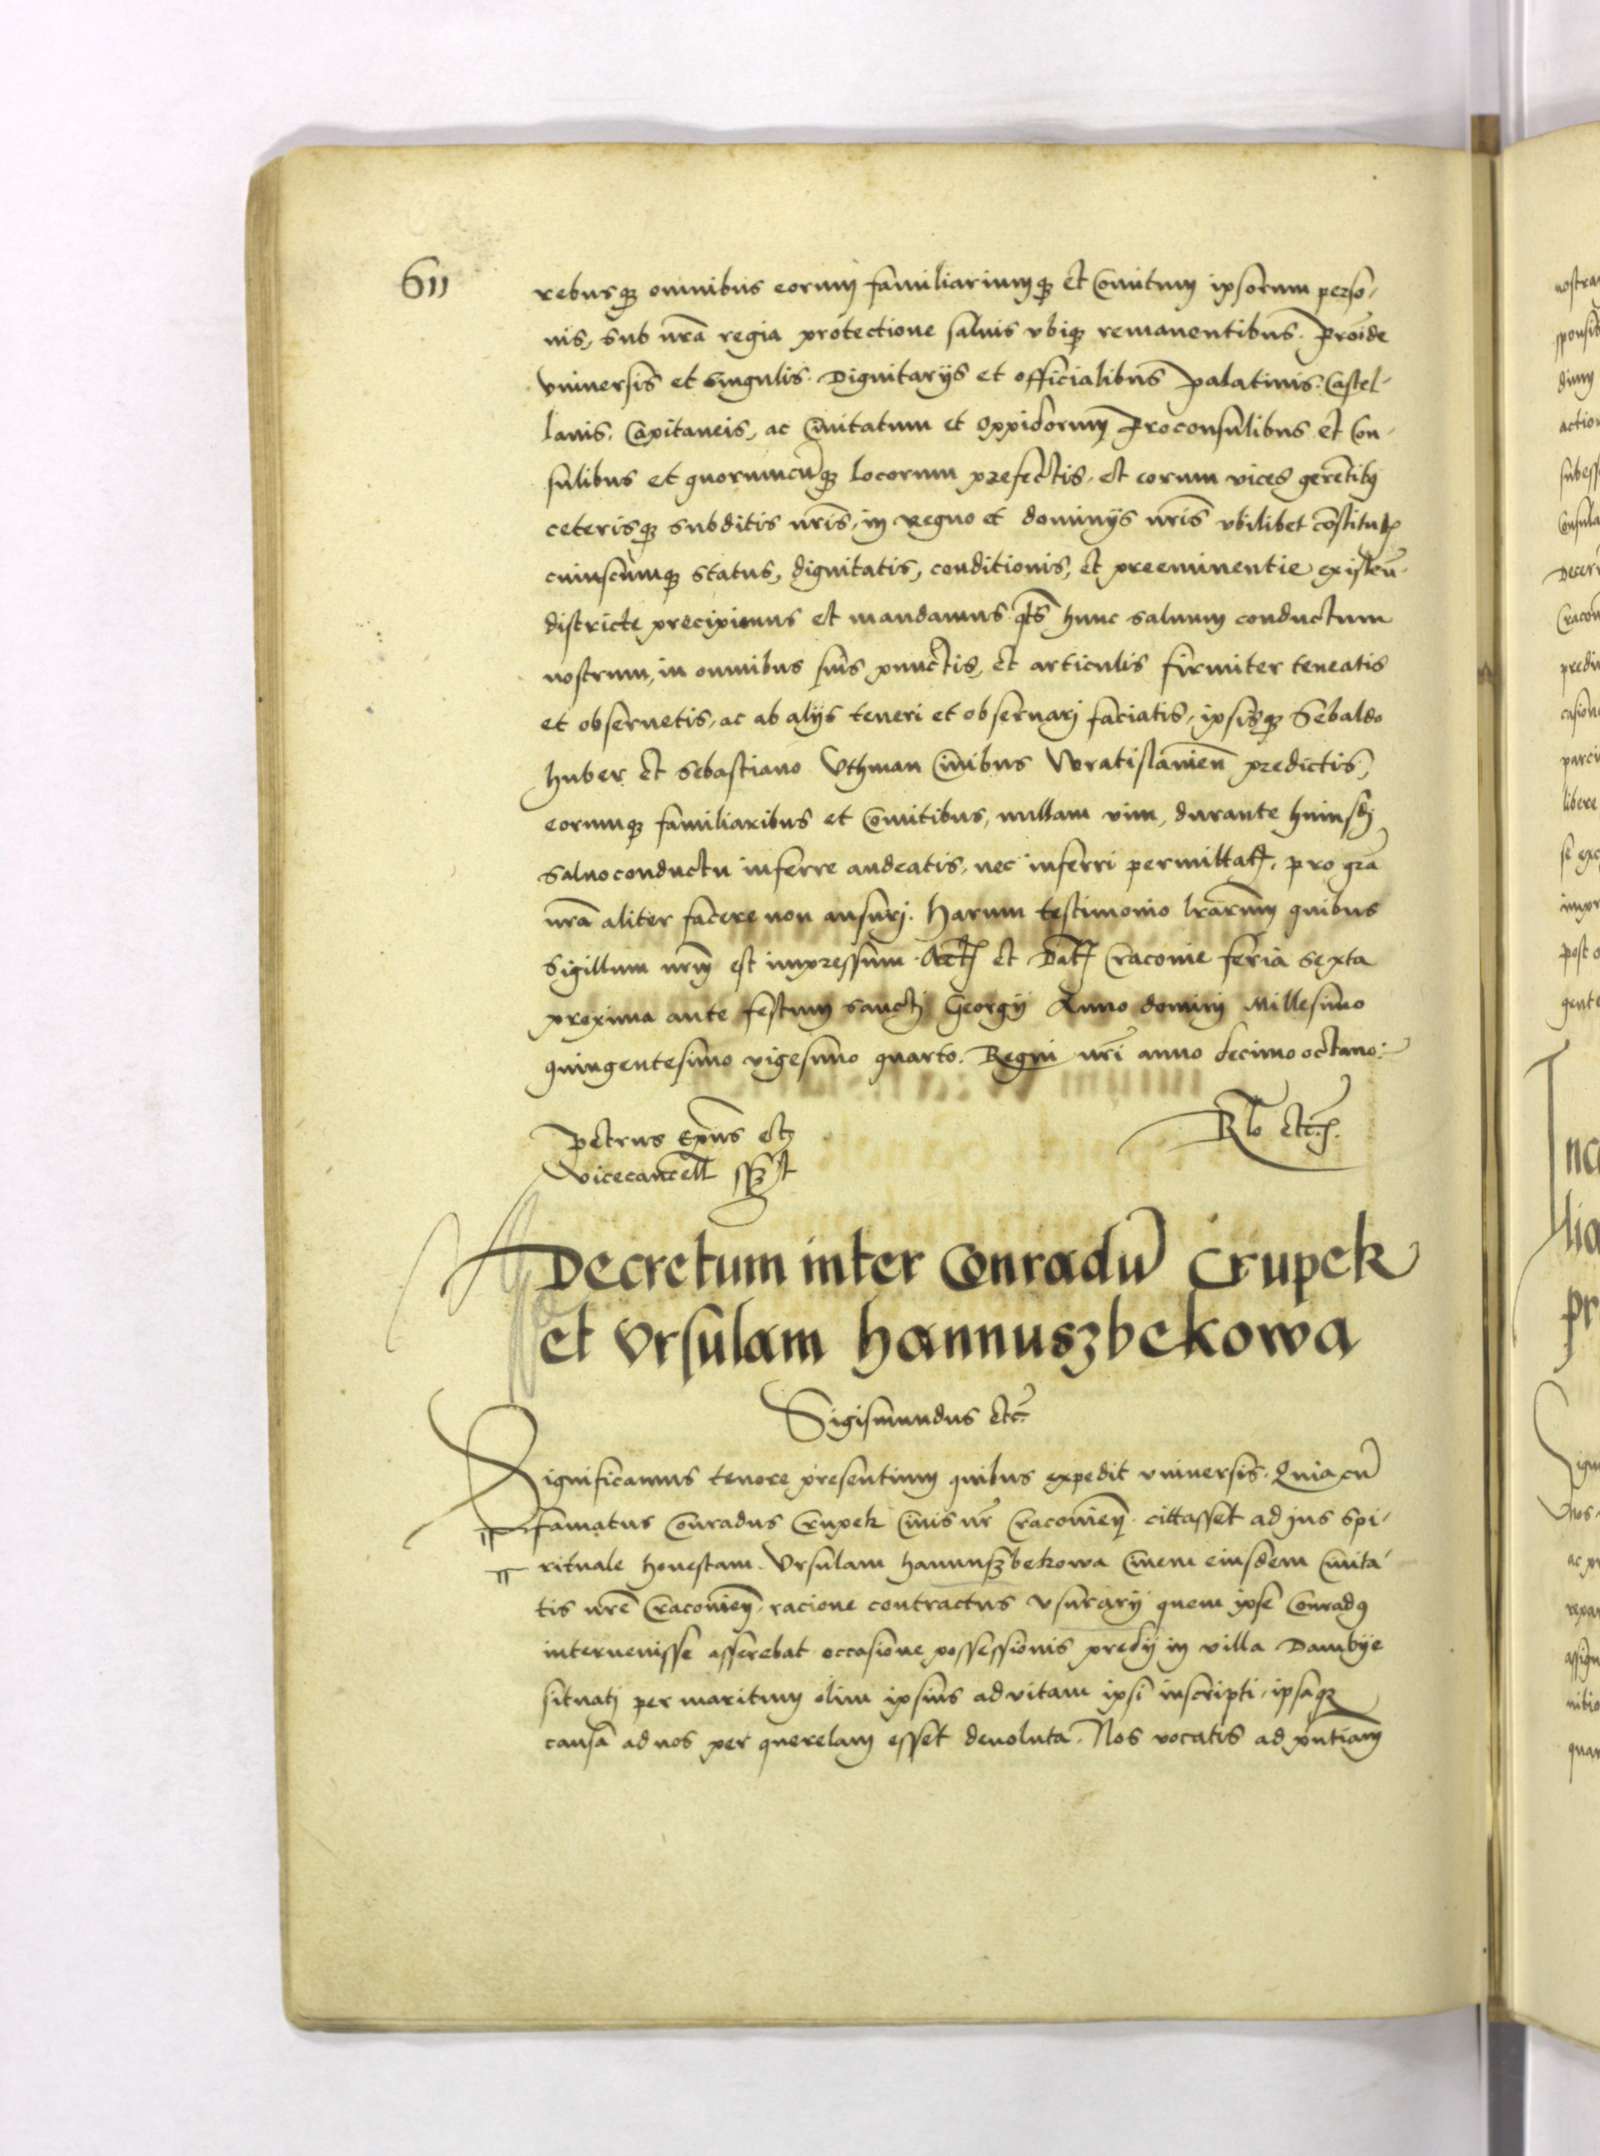 611
rebusq₃ omnibus eorum familiariumq₃ et Comitum ipsorum perso-
nis, sub nr̃a regia protectione saluis vbiq₃ remanentibus. Proīde
vniuersis et singulis. Dignitarijs et officialibus Palatinis. Castel-
lanis. Capitaneis, ac Ciuitatum et Oppidorum Proconsulibus et Con-
sulibus et quorumcūq₃ locorum prefectis, et eorum vices gerẽtibꝰ
ceterisq₃ subditis nr̃is, in Regno et dominijs nr̃is vbilibet cõstitutꝭ
cuiuscumq₃ status, dignitatis, conditionis, et preeminentie existeñ.
districte precipimus et mandamus q̃ts hunc saluum conductum
nostrum, in omnibus suis punctis, et articulis firmiter teneatis
et obseruetis, ac ab alijs teneri et obseruari faciatis, ipsisq₃ Sebaldo
huber et Sebastiano Vthman Ciuibus Wratislauieñ predictis,
eorumq₃ familiaribus et Comitibus, nullam vim, durante huiusꝭ
saluoconductu inferre audeatis, nec inferri permittatꝭ, pro gr̃a
nr̃a aliter facere non ausuri. Harum testimonio lr̃arum quibus
Sigillum nr̃m est impressum. Actꝭ et Datꝭ Cracouie feria sexta
proxima ante festum sancti Georgij Anno domini Millesimo
quingentesimo vigesimo quarto. Regni nr̃i anno decimooctauo:
Rlo etc̃.
Petrus Ep̃us etc
Vicecancell̃ sszt
Decretum inter Conradū Crupek
et Vrsulam hannuszbekowa
Sigismundus etc̃.
Significamus tenore presentium quibus expedit vniuersis. Quia cū
famatus Conradus Crupek Ciuis nr̃ Cracouieñ. cittasset ad jus spi-
rituale honestam. Vrsulam hannuszbekowa Ciuem eiusdem Ciuita-
tis nr̃e Cracouieñ. racione contractus vsurarij quem ipse Conradꝰ
interuenisse asserebat occasione possessionis predij in villa Dambye
situati per maritum olim ipsius ad vitam ipsi inscripti, ipsaq₃
causa ad nos per querelam esset deuoluta. Nos vocatis ad pñtiam